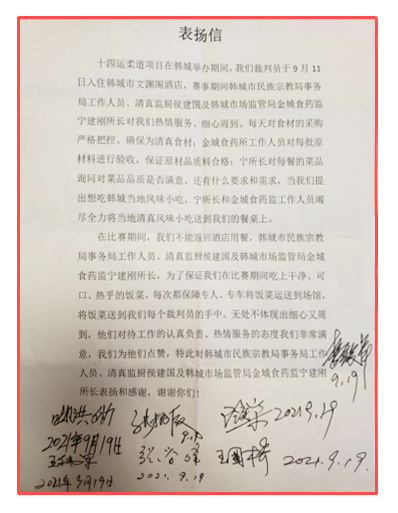 表扬信
十四运柔道项目在韩城举办期间，我们裁判员于9月11
日入住韩城市文渊阁酒店，赛事期间韩城市民族宗教局事务
局工作人员、清真监厨侯建国及韩城市场监管局金城食药监
宁建刚所长对我们热情服务、细心周到。每天对食材的采购
严格把控、确保为清真食材；金城食药所工作人员对每批原
材料进行验收，保证原材品质料合格；宁所长对每餐的菜品
询问对菜品品质是否满意、还有什么要求和需求，当我们提
出想吃韩城当地风味小吃，宁所长和金城食药监工作人员竭
尽全力将当地清真风味小吃送到我们的餐桌上。
在比赛期间，我们不能返回酒店用餐，韩城市民族宗教
局事务局工作人员、清真监厨侯建国及韩城市场监管局金城
食药监宁建刚所长，为了保证我们在比赛期间吃上干净、可
口、热乎的饭菜，每次都保障专人、专车将饭菜运送到场馆，
将饭菜送到我们每个裁判员的手中。无处不体现出细心又周
到，他们对待工作的认真负责、热情服务的态度我们非常满
意，我们为他们点赞，特此对韩城市民族宗教局事务局工作
人员、清真监厨侯建国及韩城市场监管局金城食药监宁建刚
所长表扬和感谢，谢谢你们！
9.19
2021.9.19
2021年9月19日
9.19
2021.9.19.
2021年9月19日
2021.9.19